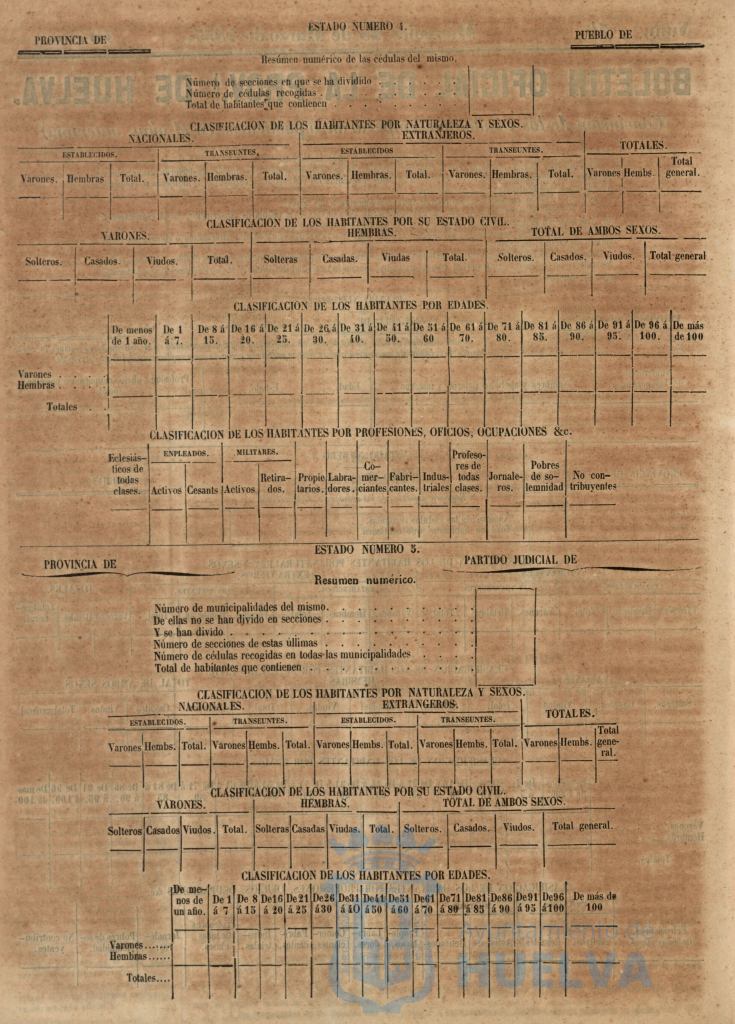 ESTADO NUMERO 4.
PROVINCIA DE
PUEBLO DE
Resúmen numérico de las cédulas del mismo.
Número de secciones en que se ha dividido
Número de cédulas recogidas
Total de habitantes que contienen
CLASIFICACION DE LOS HABITANTES POR NATURALEZA Y SEXOS.
NACIONALES. EXTRANJEROS. TOTALES.
ESTABLECIDOS. TRANSEUNTES, ESTABLECIDOS TRANSEUNTES.
Varones. Hembras Total. Varones. Hembras. Total. Varones. Hembras. Total. Varones. Hembras. Total. Varones Hembs. Total general.
CLASIFICACION DE LOS HABITANTES POR SU ESTADO CIVIL.
VARONES. HEMBRAS. TOTAL DE AMBOS SEXOS.
Solteros. Casados. Viudos. Total. Solteras Casadas. Viudas Total. Solteros. Casados. Viudos. Total general
CLASIFICACION DE LOS HABITANTES POR EDADES.
De menos De 1 De 8 á De 16 á De 21 á De 26 á De 31 á De 41 á De 51 á De 61 á De 71 á De 81 á De 86 á De 91 á De 96 á De más
de 1 año. á 7. 15. 20. 25. 30. 40. 50. 60 70. 80. 85. 90. 95. 100. de 100
Varones
Hembras
Totales
CLASIFICACION DE LOS HABITANTES POR PROFESIONES, OFICIOS, OCUPACIONES &c.
Eclesiás-
ticos de
todas
clases.
EMPLEADOS. MILITARES.
Activos Cesants Activos. Retira-
dos.
Propie
tarios.
Labra-
dores.
Co-
mer-
ciantes
Fabri-
cantes.
Indus-
triales
Profeso-
res de
todas
clases.
Jornale-
ros.
Pobres
de so-
lemnidad
No con-
tribuyentes
ESTADO NUMERO 5.
PROVINCIA DE
PARTIDO JUDICIAL DE
Resumen numérico.
Número de municipalidades del mismo.
De ellas no se han divido en secciones
Y se han divido
Número de secciones de estas últimas
Número de cédulas recogidas en todas las municipalidades
Total de habitantes que contienen
CLASIFICACION DE LOS HABITANTES POR NATURALEZA Y SEXOS.
NACIONALES. EXTRANGEROS. TOTALES.
ESTABLECIDOS. TRANSEUNTES. ESTABLECIDOS. TRANSEUNTES.
Varones Hembs. Total. Varones Hembs. Total. Varones Hembs. Total. Varones Hembs. Total. Varones Hembs. Total
gene-
ral.
CLASIFICACION DE LOS HABITANTES POR SU ESTADO CIVIL.
VARONES. HEMBRAS. TOTAL DE AMBOS SEXOS.
Solteros Casados Viudos. Total. Solteras Casadas Viudas. Total. Solteros. Casados. Viudos. Total general.
CLASIFICACION DE LOS HABITANTES POR EDADES.
De me-
nos de
un año.
De 1 De 8 De 16 De 21 De 26 De 31 De 41 De 51 De 61 De 71 De 81 De 86 De 91 De 96 De más de
á 7 á 15 á 20 á 25 á 30 á 40 á 50 á 60 á 70 á 80 á 85 á 90 á 95 á 100 100
Varones.......
Hembras......
Totales....
Ayuntamiento de
HUELVA